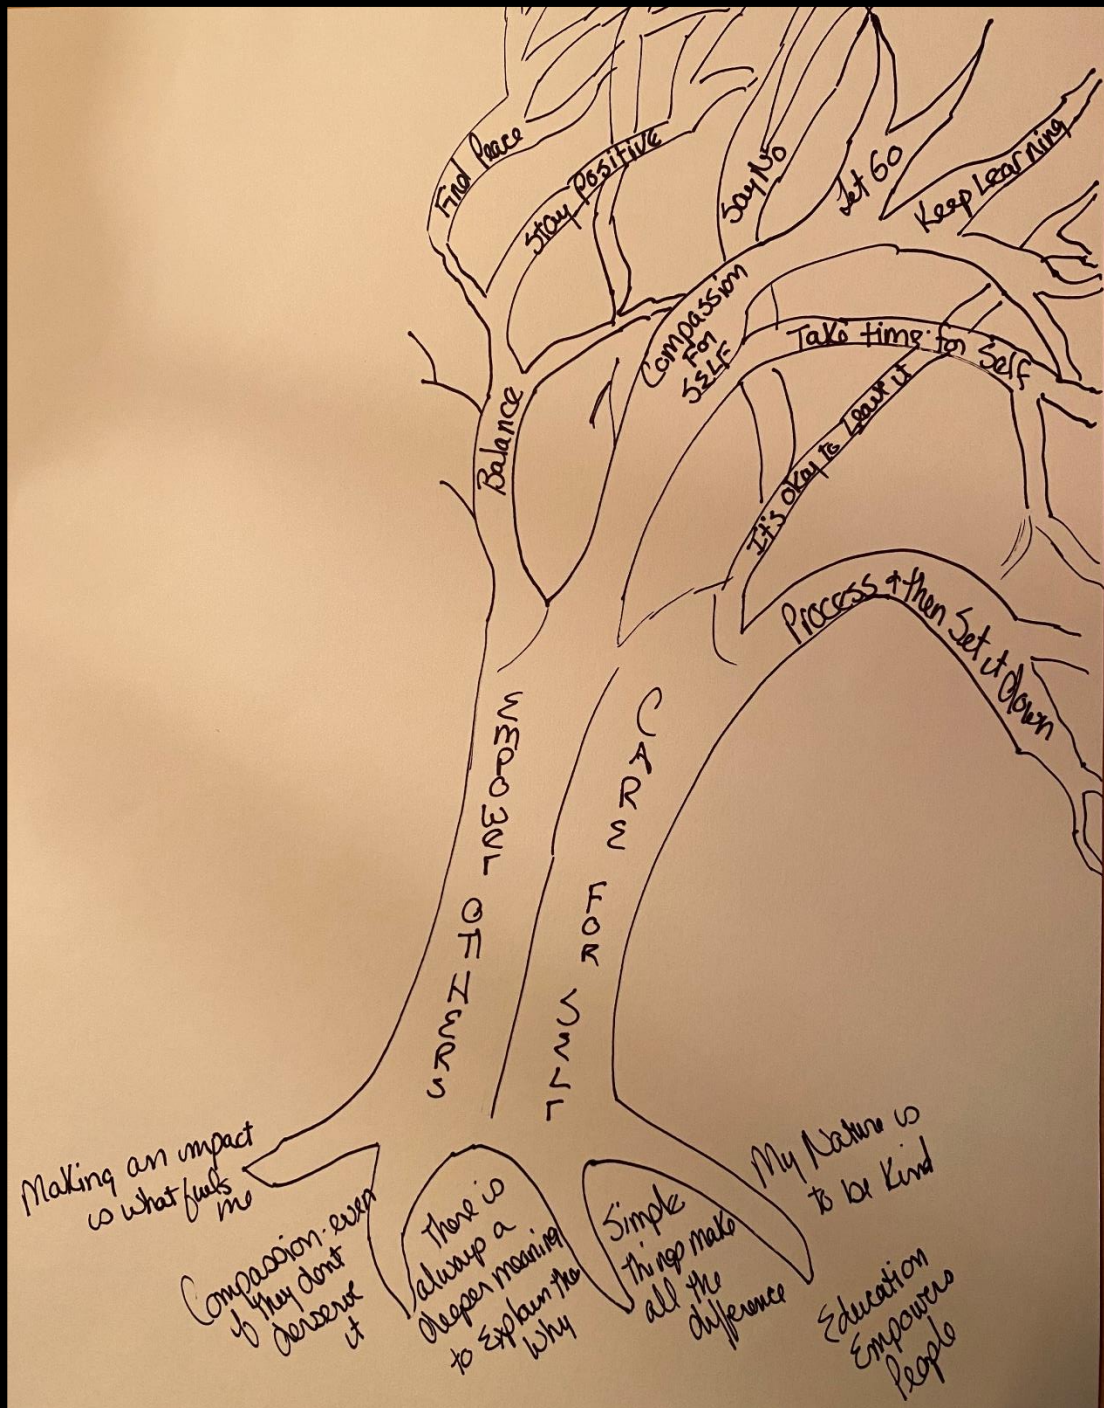 Find Peace
Stay Positive
Say No
Let Go
Keep Learning
Balance
Compassion
For
SELF
Take time for Self
It's okay to Leave it
Process & then Set it down
EMPOWER OTHERS
CARE FOR SELF
Making an impact
is what fuels
me
Compassion-even
if they dont
deserve
it
There is
always a
deeper meaning
to Explain the
Why
Simple
things make
all the
difference
My Nature is
to be Kind
Education
Empowers
People